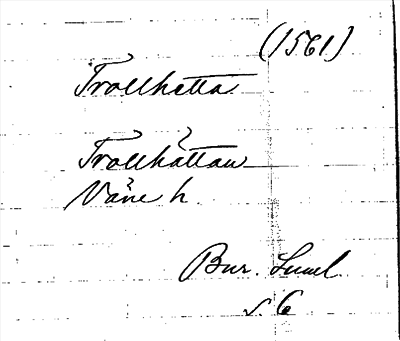 (1561)
Trollhetta
Trollhättan
Väne h.
Bur. Sumel
s. 6